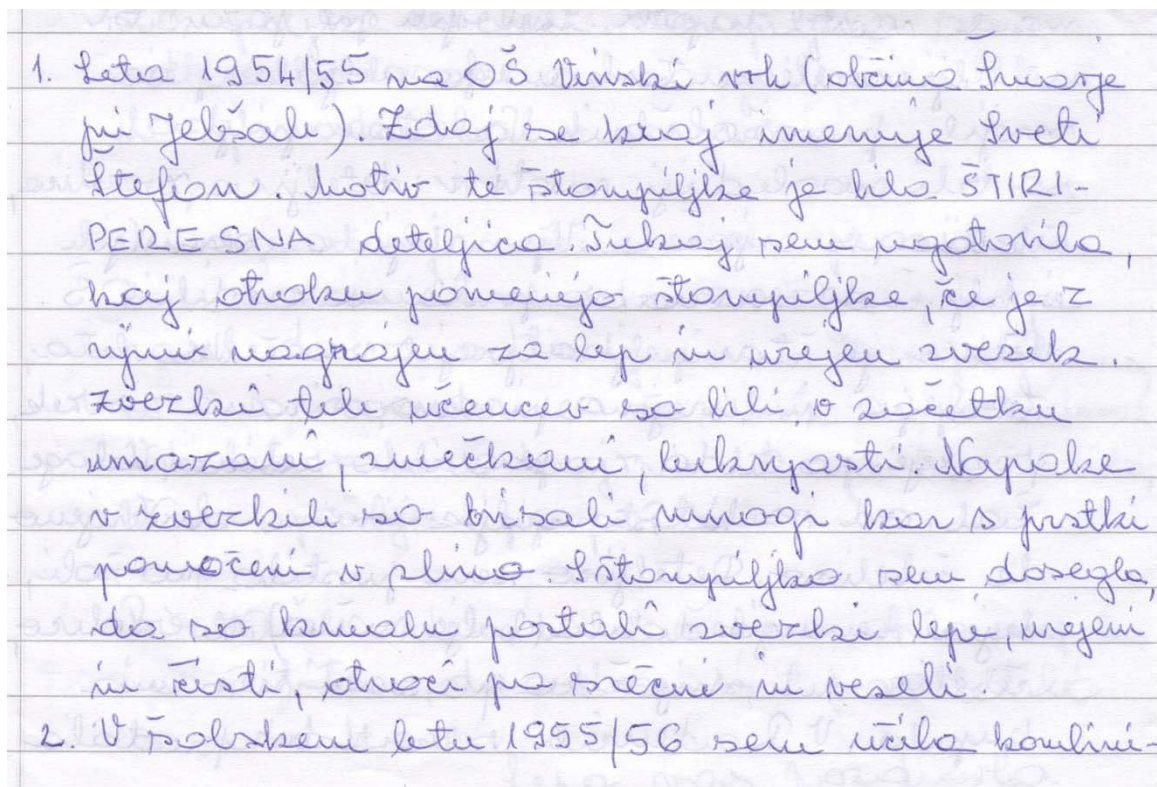 1. Leta 1954/55 na OŠ Vinski vrh (občina Šmarje
pri Jelšah). Zdaj se kraj imenuje Sveti
Štefan. Motiv te štampiljke je bila ŠTIRI-
PERESNA deteljica. Tukaj sem ugotovila,
kaj otroku pomenijo štampiljke, če je z
njimi nagrajen za lep in urejen zvezek.
Zvezki teh učencev so bili v začetku
umazani, zmečkani, luknjasti. Napake
v zvezkih so brisali mnogi kar s prstki
pomočeni v slino. S štampiljko sem dosegla,
da so kmalu postali zvezki lepi, urejeni
in čisti, otroci pa srečni in veseli.
2. V šolskem letu 1955/56 sem učila kombini-